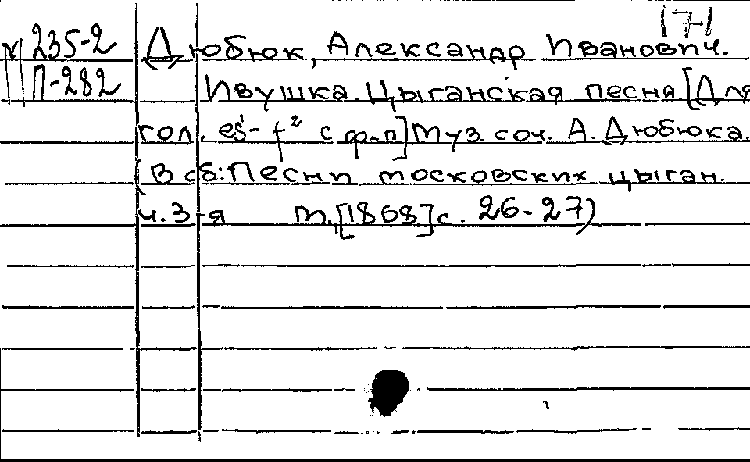 17-1
235-2 Дюбюк, Александр Иванович.
П-282 Ивушка. Цыганская песня [Для
гол. es¹- f² с ф-п] Муз. соч. А. Дюбюка.
(В сб: Песни московских цыган.
ч. 3-я М., [1868] с. 26-27)